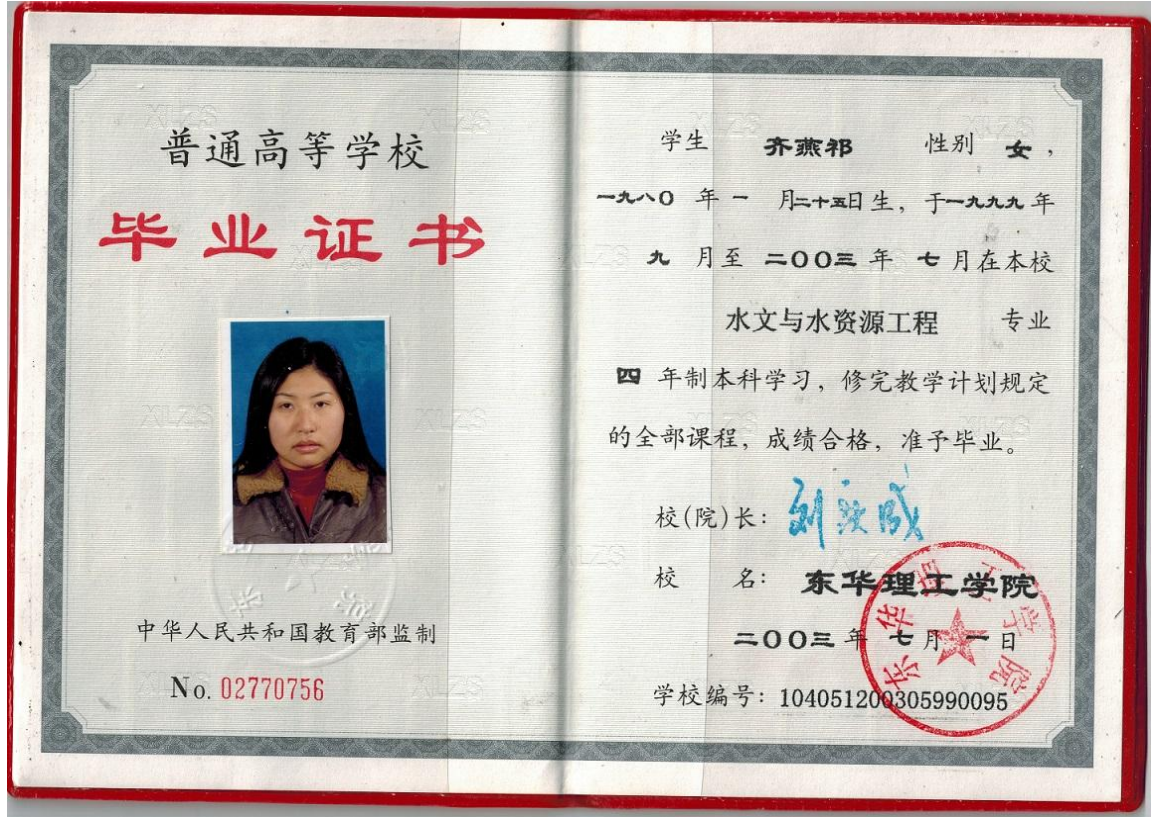 普通高等学校
毕业证书
中华人民共和国教育部监制
No. 02770756
学生 齐燕祁 性别 女，
一九八〇 年 一 月二十五日生，于一九九九 年
九 月至 二〇〇三 年 七 月在本校
水文与水资源工程 专业
四 年制本科学习，修完教学计划规定
的全部课程，成绩合格，准予毕业。
校(院)长：
校 名：东华理工学院
二〇〇三 年 七 月 一 日
学校编号：104051200305990095
东华理工学院
XLZS